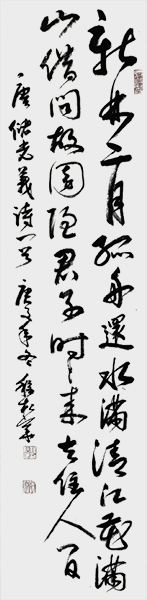 新林二月孤舟還水滿清江花滿
山借問故園隱君子時時来去住人間
唐儲光羲詩一首